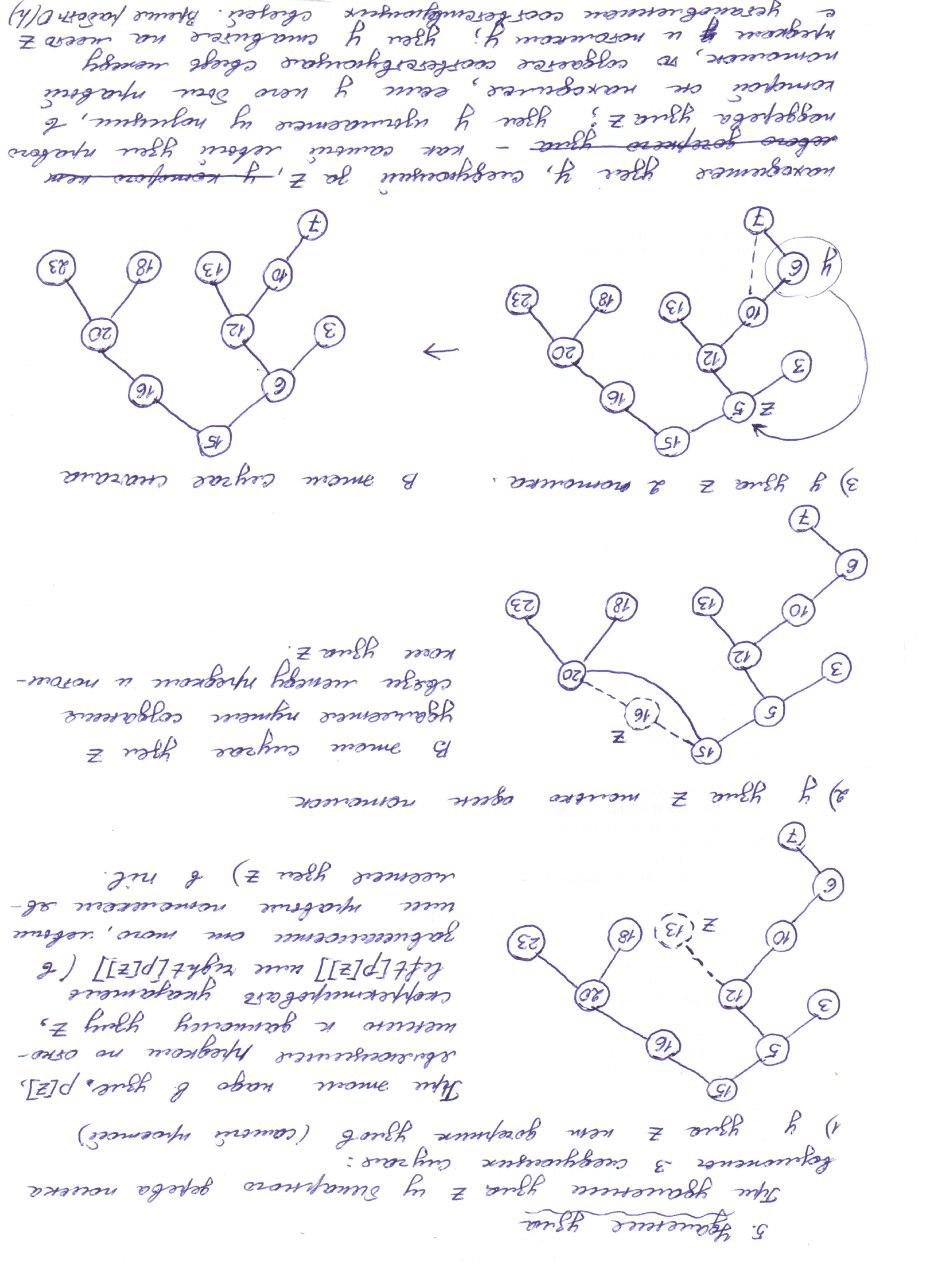 5. Удаление узла
При удалении узла Z из бинарного дерева поиска
возможены 3 следующих случая:
1) у узла Z нет дочерних узлов (самый простой)
При этом надо в узле p[Z],
являющимся предком по отно-
шению к данному узлу Z,
скорректировать указатель
left[p[Z]] или right[p[Z]] (в
зависимости от того, левым
или правым потомком яв-
ляется узел Z) в nil.
15
5 16
3 12 20
10 Z 13 18 23
6
7
2) у узла Z только один потомок
В этом случае узел Z
удаляется путем создания
связи между предком и потом-
ком узла Z.
15 Z
5 16
3 12 20
10 13 18 23
6
7
3) у узла Z 2 потомка. В этом случае сначала
15
Z 5 16
3 12 20
10 13 18 23
y 6
7
15
6 16
3 12 20
10 13 18 23
7
находится узел y, следующий за Z, у которого нет
левого дочернего узла – как самый левый узел правого
поддерева узла Z; узел y изымается из позиции, в
которой он находился, если у него был правый
потомок, то создается соответствующая связь между
предком y и потомком y; узел y ставится на место Z
с установлением соответствующих связей. Время работы O(h)